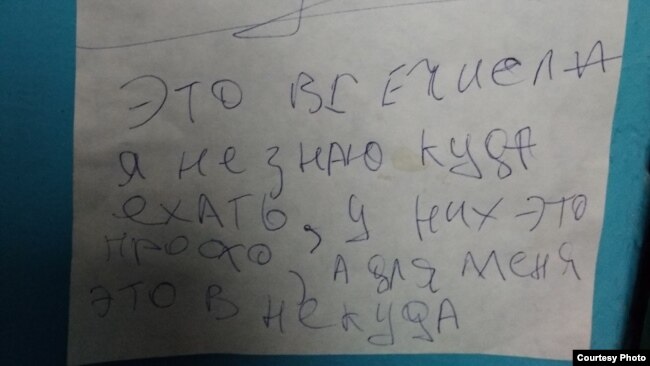 ЭТО ВСЕ
Я НЕ ЗНАЮ КУДА
ЕХАТЬ, У НИХ ЭТО
, А ДЛЯ МЕНЯ
ЭТО В НЕКУДА
Courtesy Photo